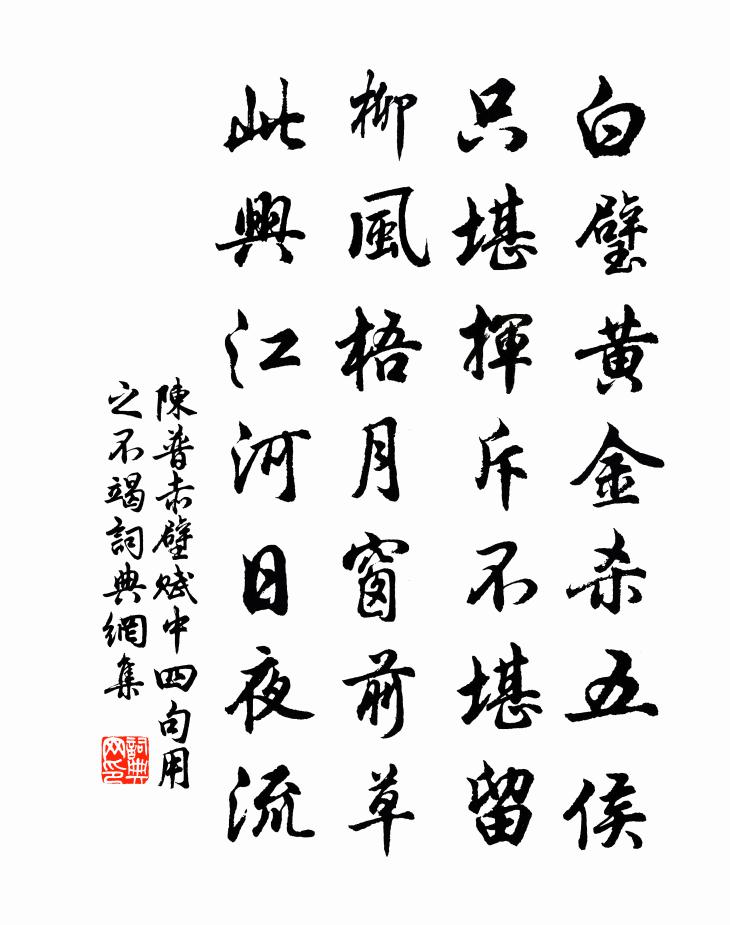 白璧黄金杀五侯
只堪揮斥不堪留
柳風梧月窗前草
此興江河日夜流
陳普赤壁赋中四句用
之不竭詞典網集
詞典网印